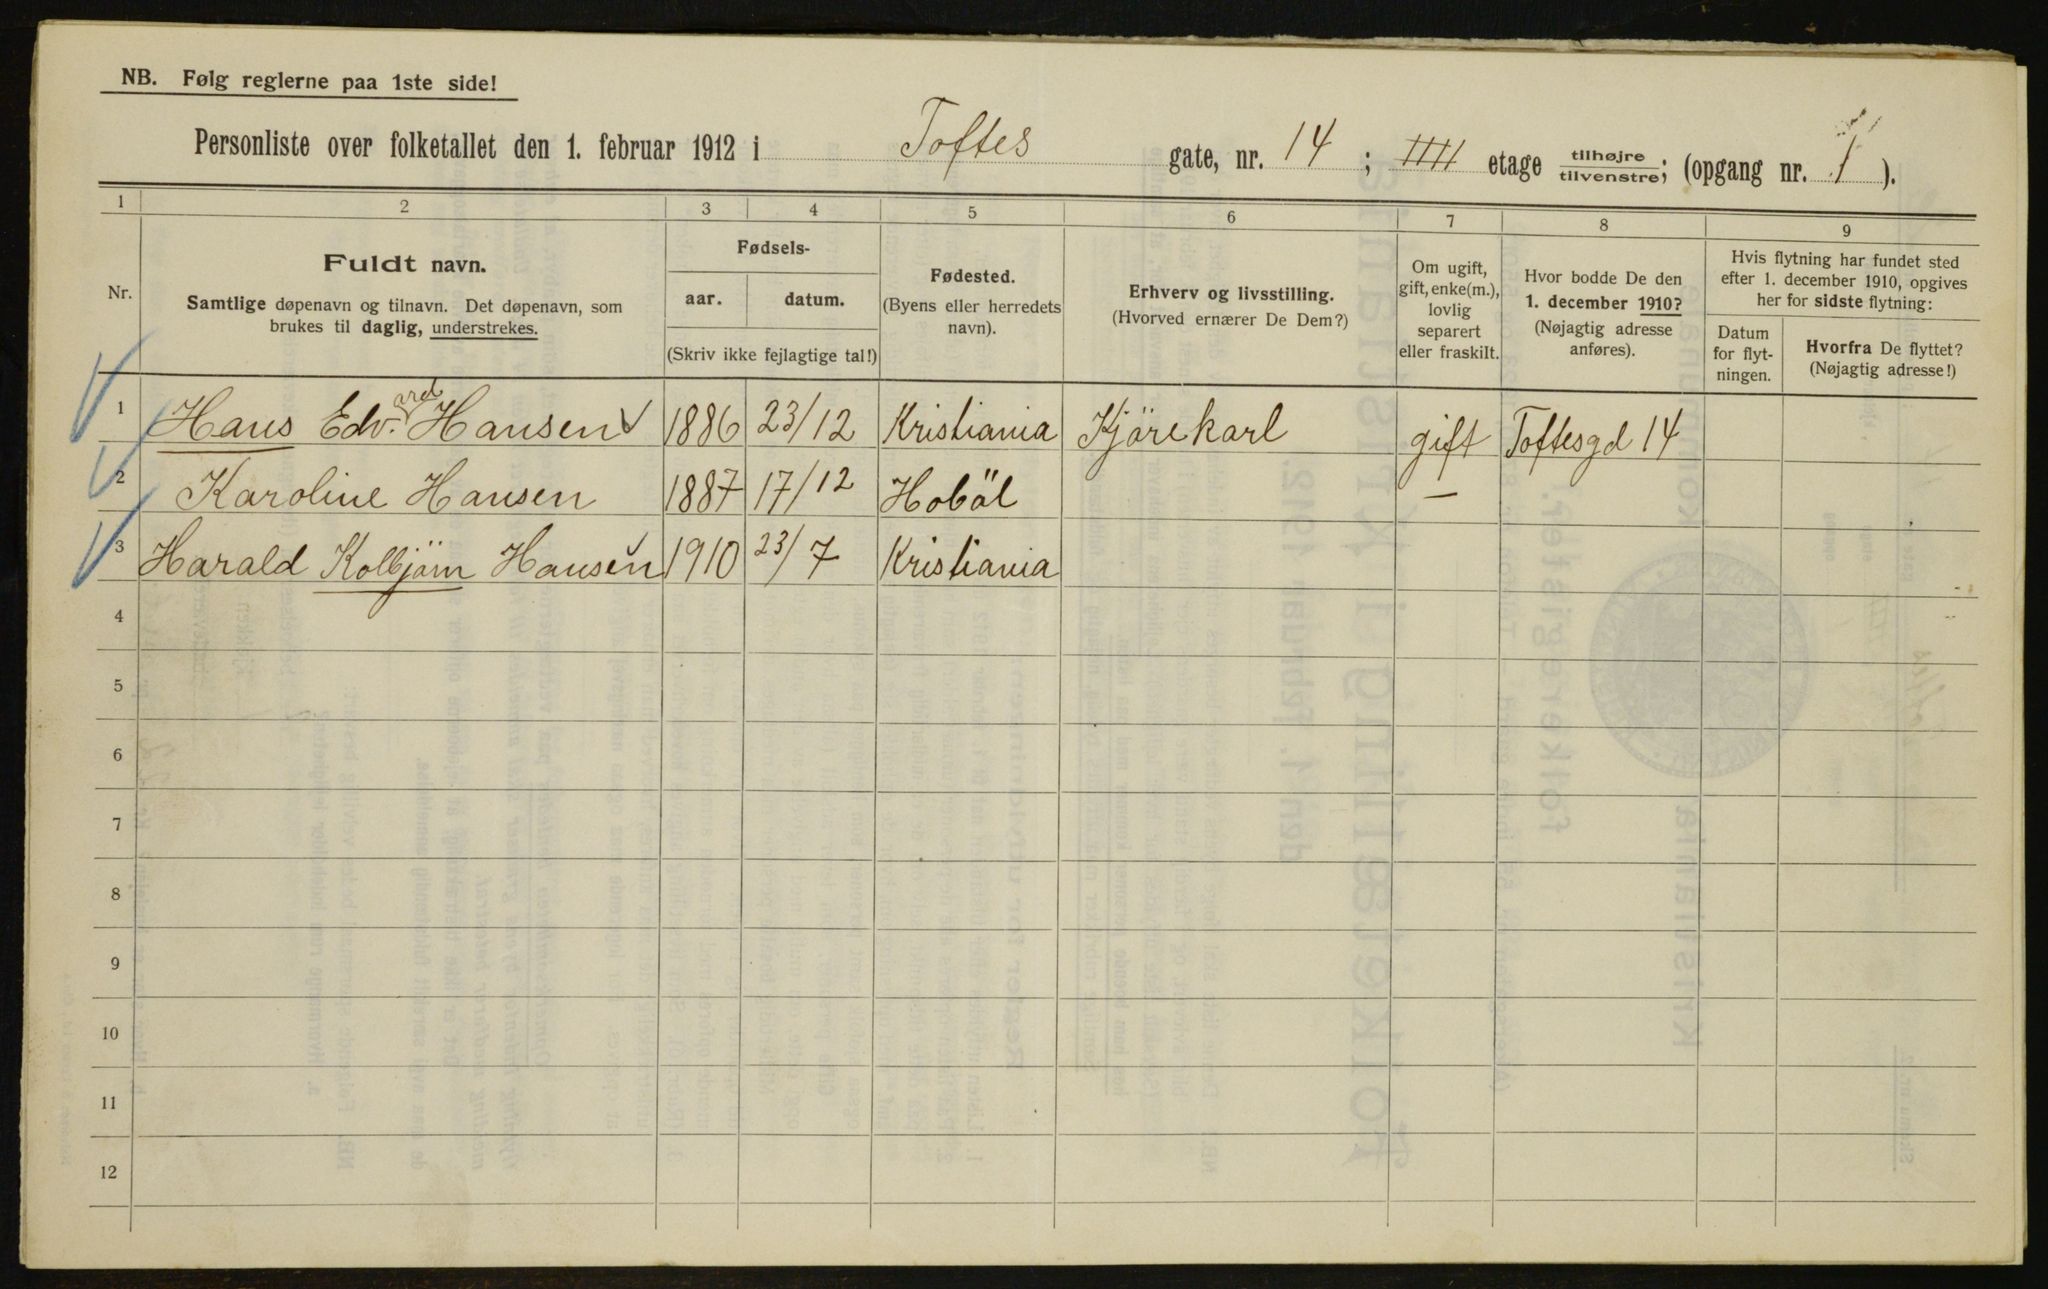 NB. Følg reglerne paa 1ste side!
Personliste over folketallet den 1. februar 1912 i Toftes gate, nr. 14; IIII etage tilhøjre tilvenstre; (opgang nr. 1).
1 2 3 4 5 6 7 8 9
Nr.
Fuldt navn.
Samtlige døpenavn og tilnavn. Det døpenavn, som
brukes til daglig, understrekes.
Fødsels-
aar. datum.
(Skriv ikke fejlagtige tal!)
Fødested.
(Byens eller herredets
navn).
Erhverv og livsstilling.
(Hvorved ernærer De Dem?)
Om ugift,
gift, enke(m.),
lovlig
separert
eller fraskilt.
Hvor bodde De den
1. december 1910?
(Nøjagtig adresse
anføres).
Hvis flytning har fundet sted
efter 1. december 1910, opgives
her for sidste flytning:
Datum
for flyt-
ningen.
Hvorfra De flyttet?
(Nøjagtig adresse!)
1 Hans Edv.ard Hansen 1886 23/12 Kristiania Kjörekarl gift Toftesgd 14
2 Karoline Hansen 1887 17/12 Hoböl —
3 Harald Kolbjörn Hansen 1910 23/7 Kristiania
4
5
6
7
8
9
10
11
12